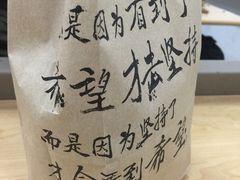 是因为看到了
希望才坚持
而是因为坚持了
才会看到希望